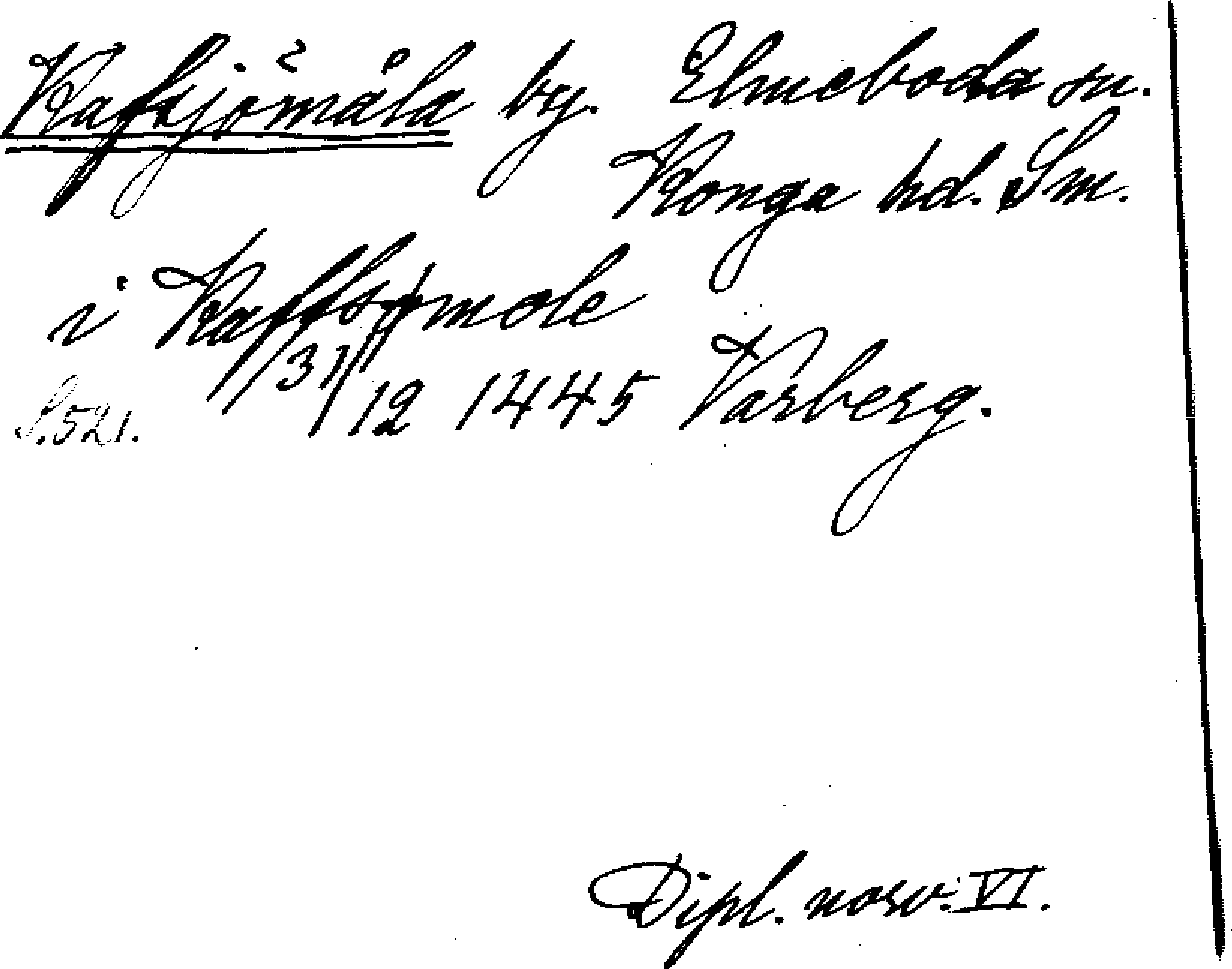 Kafsjömåla by. Elmeboda sn.
Konga hd. Sm.
i Kaffsiømole
S. 521. 31/12 1445 Varberg.
Dipl. norv. VI.